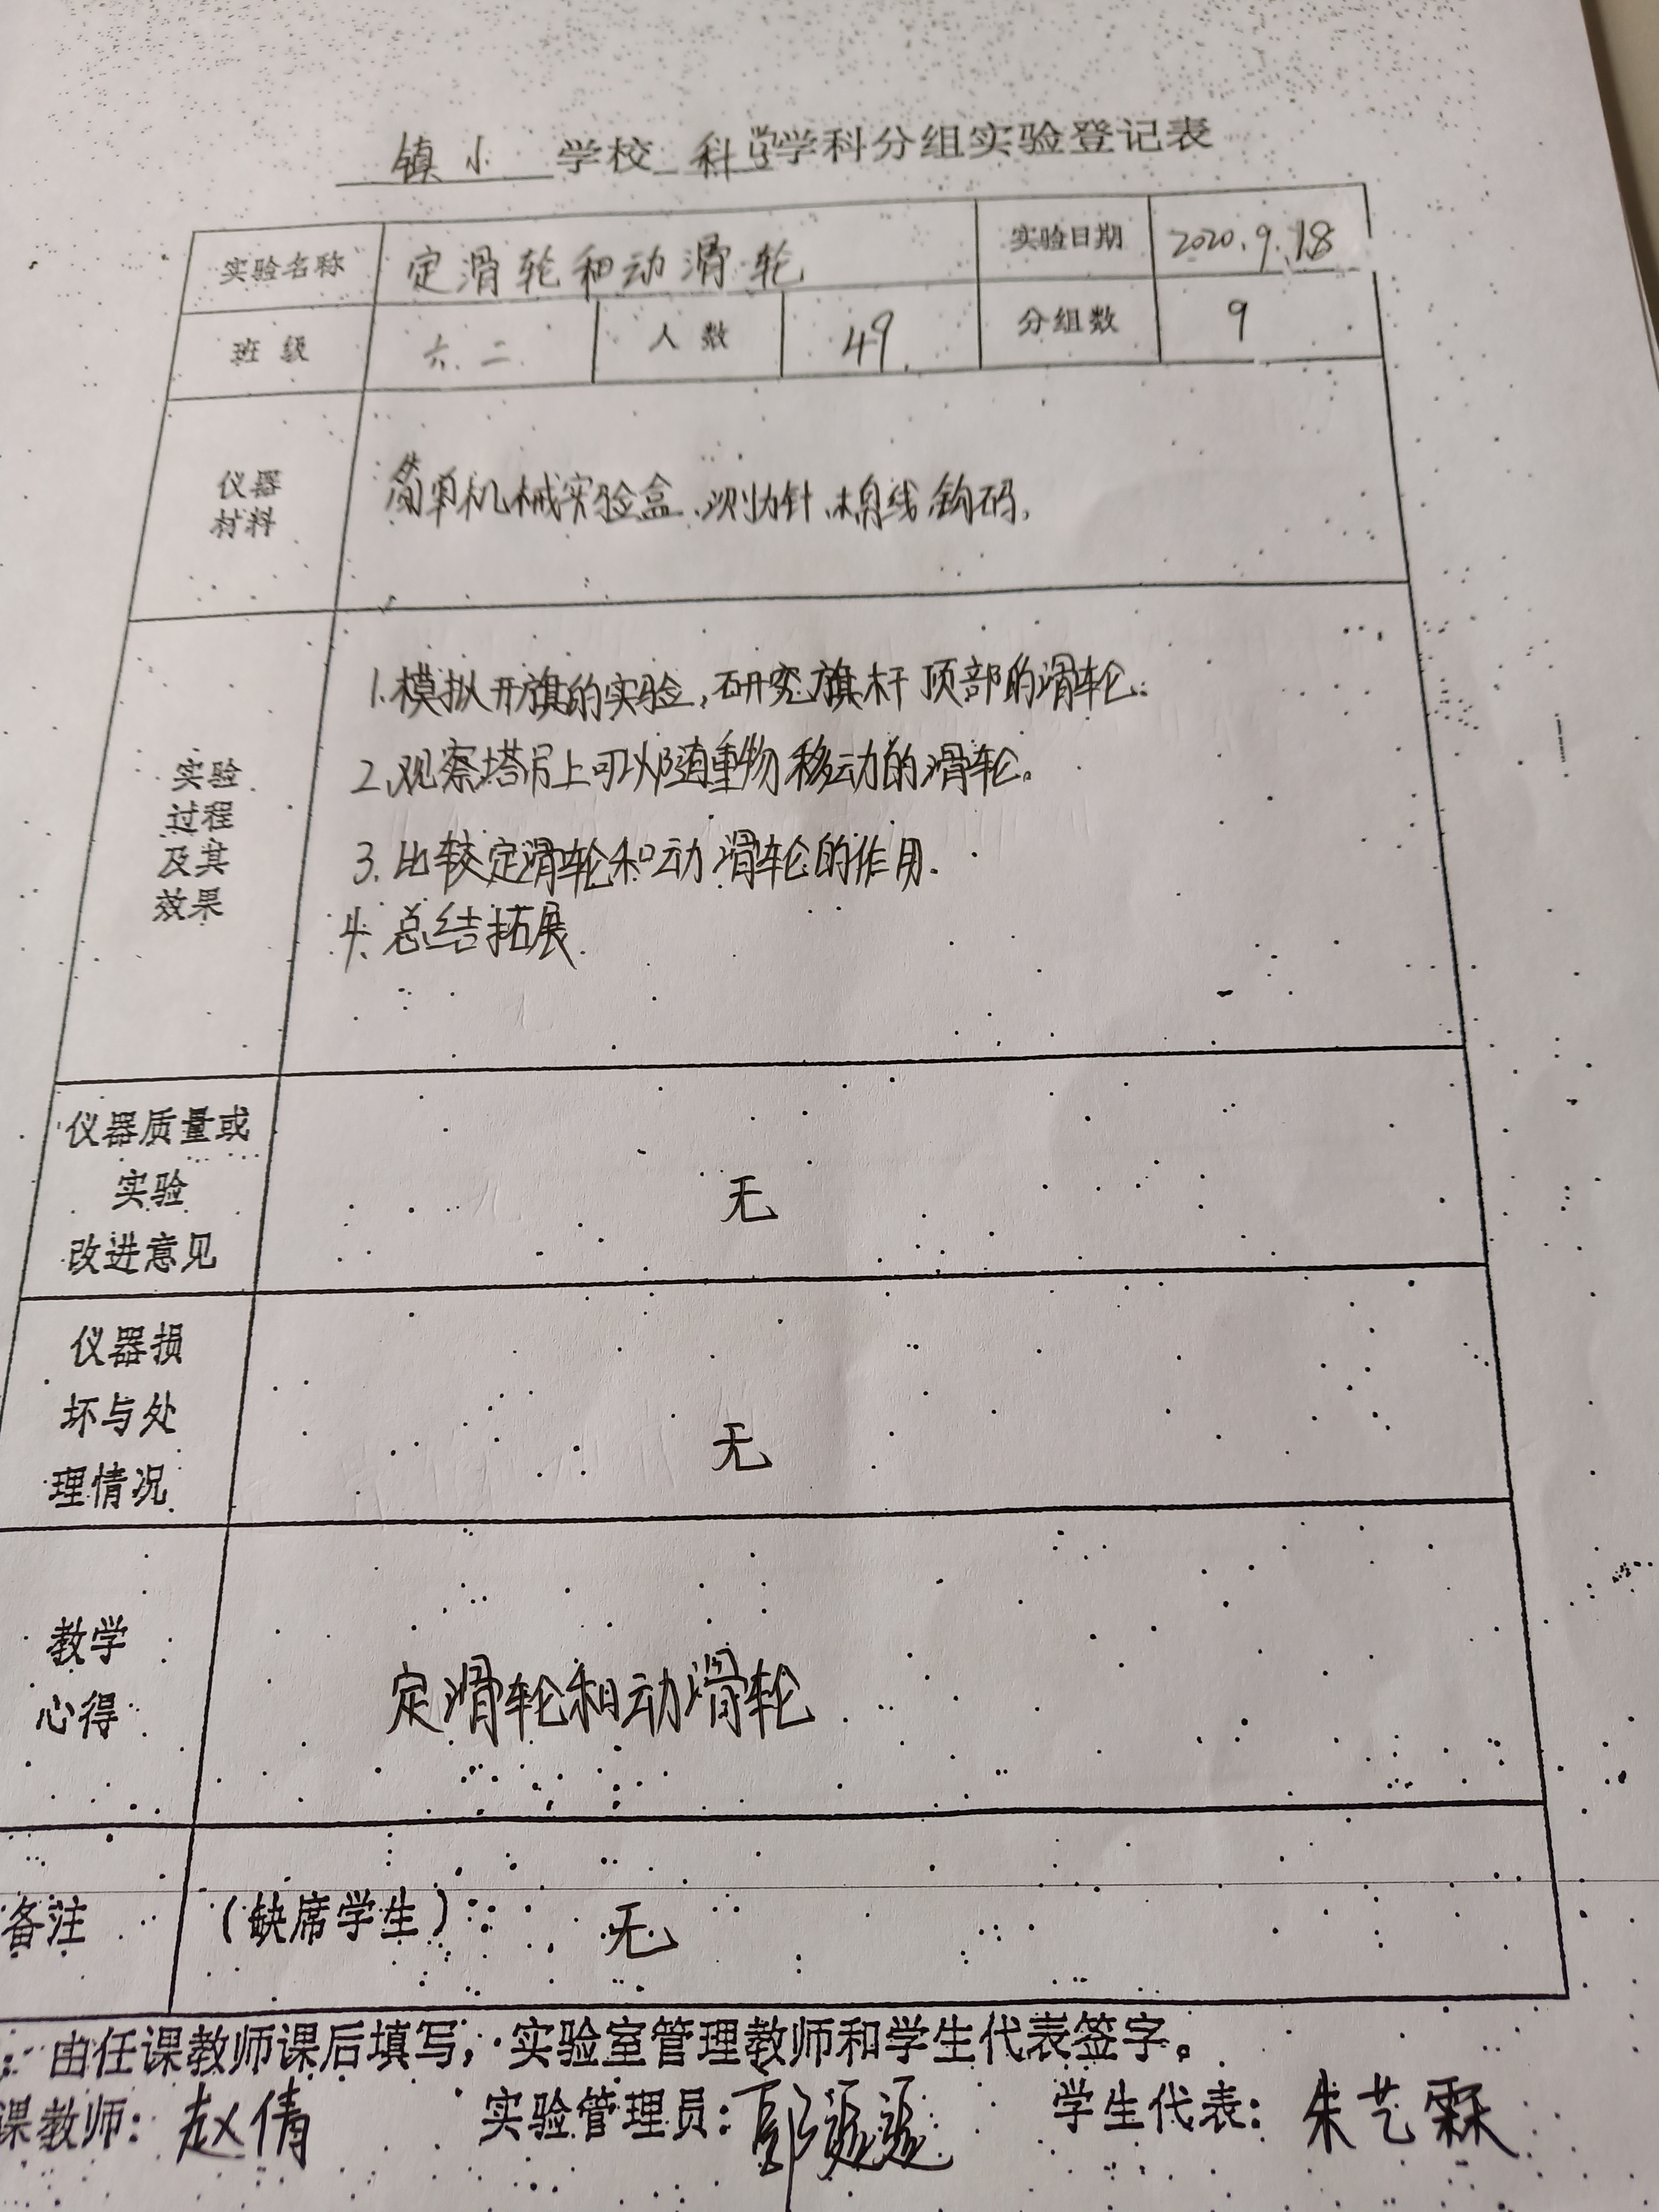 镇小 学校 科学 学科分组实验登记表
实验名称 定滑轮和动滑轮 实验日期 2020.9.18
班级 六.二 人数 49. 分组数 9
仪器
材料
简单机械实验盒、测力计、棉线、钩码。
实验
过程
及其
效果
1.模拟升旗的实验,研究旗杆顶部的滑轮.
2.观察塔吊上可以随重物移动的滑轮。
3.比较定滑轮和动滑轮的作用.
4.总结拓展.
仪器质量或
实验
改进意见
无
仪器损
坏与处
理情况
无
教学
心得
定滑轮和动滑轮
备注 (缺席学生): 无
:由任课教师课后填写,实验室管理教师和学生代表签字。
课教师: 赵倩 实验管理员: 郭 学生代表: 朱艺霖